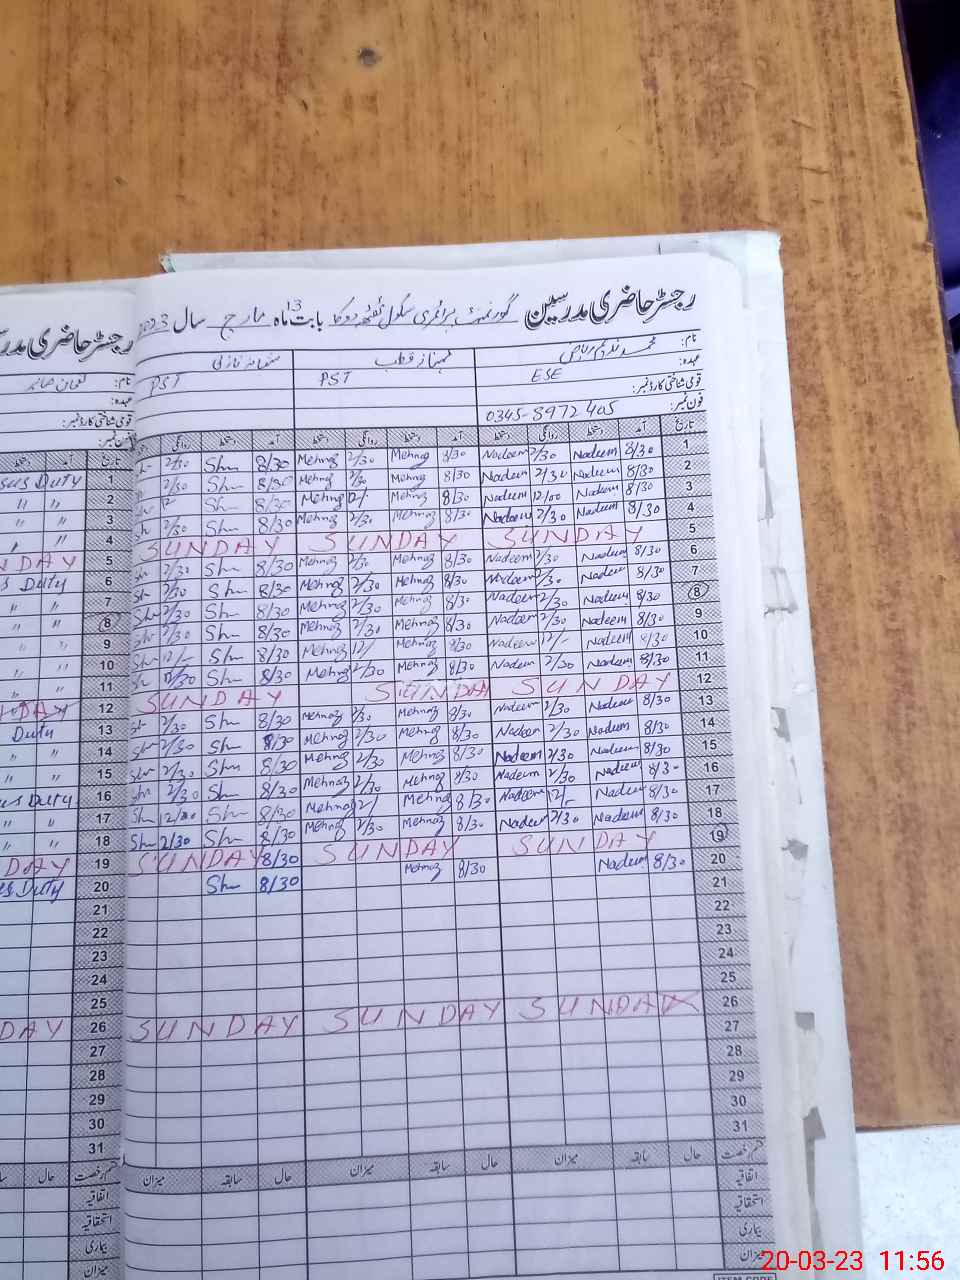 رجسٹر حاضری مدرسین گورنمنٹ پرائمری سکول بابت ماہ مارچ سال 2023
13
نام: محمد ندیم ریاض
عہدہ: ESE PST PST
قومی شناختی کارڈ نمبر:
فون نمبر: 0345-8972405
تاریخ آمد دستخط روانگی دستخط آمد دستخط روانگی دستخط آمد دستخط روانگی
1 8/30 Nadeem 2/30 Nadeem 8/30 Mehnaz 2/30 Mehnaz 8/30 Sh 2/30 Sh
2 8/30 Nadeem 2/30 Nadeem 8/30 Mehnaz 2/30 Mehnaz 8/30 Sh 2/30
3 8/30 Nadeem 12/00 Nadeem 8/30 Mehnaz 12/ Mehnaz 8/30 Sh 12
4 8/30 Nadeem 2/30 Nadeem 8/30 Mehnaz 2/30 Mehnaz 8/30 Sh 2/30 Sh
5 SUNDAY SUNDAY SUNDAY
6 8/30 Nadeem 2/30 Nadeem 8/30 Mehnaz 2/30 Mehnaz 8/30 Sh 2/30 Sh
7 8/30 Nadeem 2/30 Nadeem 8/30 Mehnaz 2/30 Mehnaz 8/30 Sh 2/30 Sh
8 8/30 Nadeem 2/30 Nadeem 8/30 Mehnaz 2/30 Mehnaz 8/30 Sh 2/30 Sh
9 8/30 Nadeem 2/30 Nadeem 8/30 Mehnaz 2/30 Mehnaz 8/30 Sh 2/30 Sh
10 8/30 Nadeem 12/- Nadeem 8/30 Mehnaz 12/ Mehnaz 8/30 Sh 12/- Sh
11 8/30 Nadeem 2/30 Nadeem 8/30 Mehnaz 2/30 Mehnaz 8/30 Sh 2/30 Sh
12 SUNDAY SUNDA SUNDAY
13 8/30 Nadeem 2/30 Nadeem 8/30 Mehnaz 2/30 Mehnaz 8/30 Sh 2/30 Sh
14 8/30 Nadeem 2/30 Nadeem 8/30 Mehnaz 2/30 Mehnaz 8/30 Sh 2/30 Sh
15 8/30 Nadeem 2/30 Nadeem 8/30 Mehnaz 2/30 Mehnaz 8/30 Sh 2/30 Sh
16 8/30 Nadeem 2/30 Nadeem 8/30 Mehnaz 2/30 Mehnaz 8/30 Sh 2/30 Sh
17 8/30 Nadeem 12/- Nadeem 8/30 Mehnaz 12/ Mehnaz 8/30 Sh 12/00 Sh
18 8/30 Nadeem 2/30 Nadeem 8/30 Mehnaz 2/30 Mehnaz 8/30 Sh 2/30 Sh
19 SUNDAY SUNDAY SUNDAY 8/30
20 8/30 Nadeem 8/30 Mehnaz 8/30 Sh
21
22
23
24
25
26 SUNDAY SUNDAY SUNDAY
27
28
29
30
31
قسم رخصت حال سابقہ میزان حال سابقہ میزان حال سابقہ میزان
اتفاقیہ
استحقاقیہ
بیماری
میزان
رجسٹر حاضری
نام:
عہدہ:
قومی شناختی کارڈ نمبر:
فون نمبر:
تاریخ آمد
1 Duty
2 " "
3 " "
4 "
NDAY
6 Duty
7 " "
8 " "
9 " "
10 " "
11 " "
12 DAY
13 Duty
14 "
15 " "
16 Duty
17 " "
18 " "
19 DAY
20 Duty
21
22
23
24
25
26 DAY
27
28
29
30
31
قسم رخصت حال
اتفاقیہ
استحقاقیہ
بیماری
میزان
ITEM CODE
20-03-23 11:56